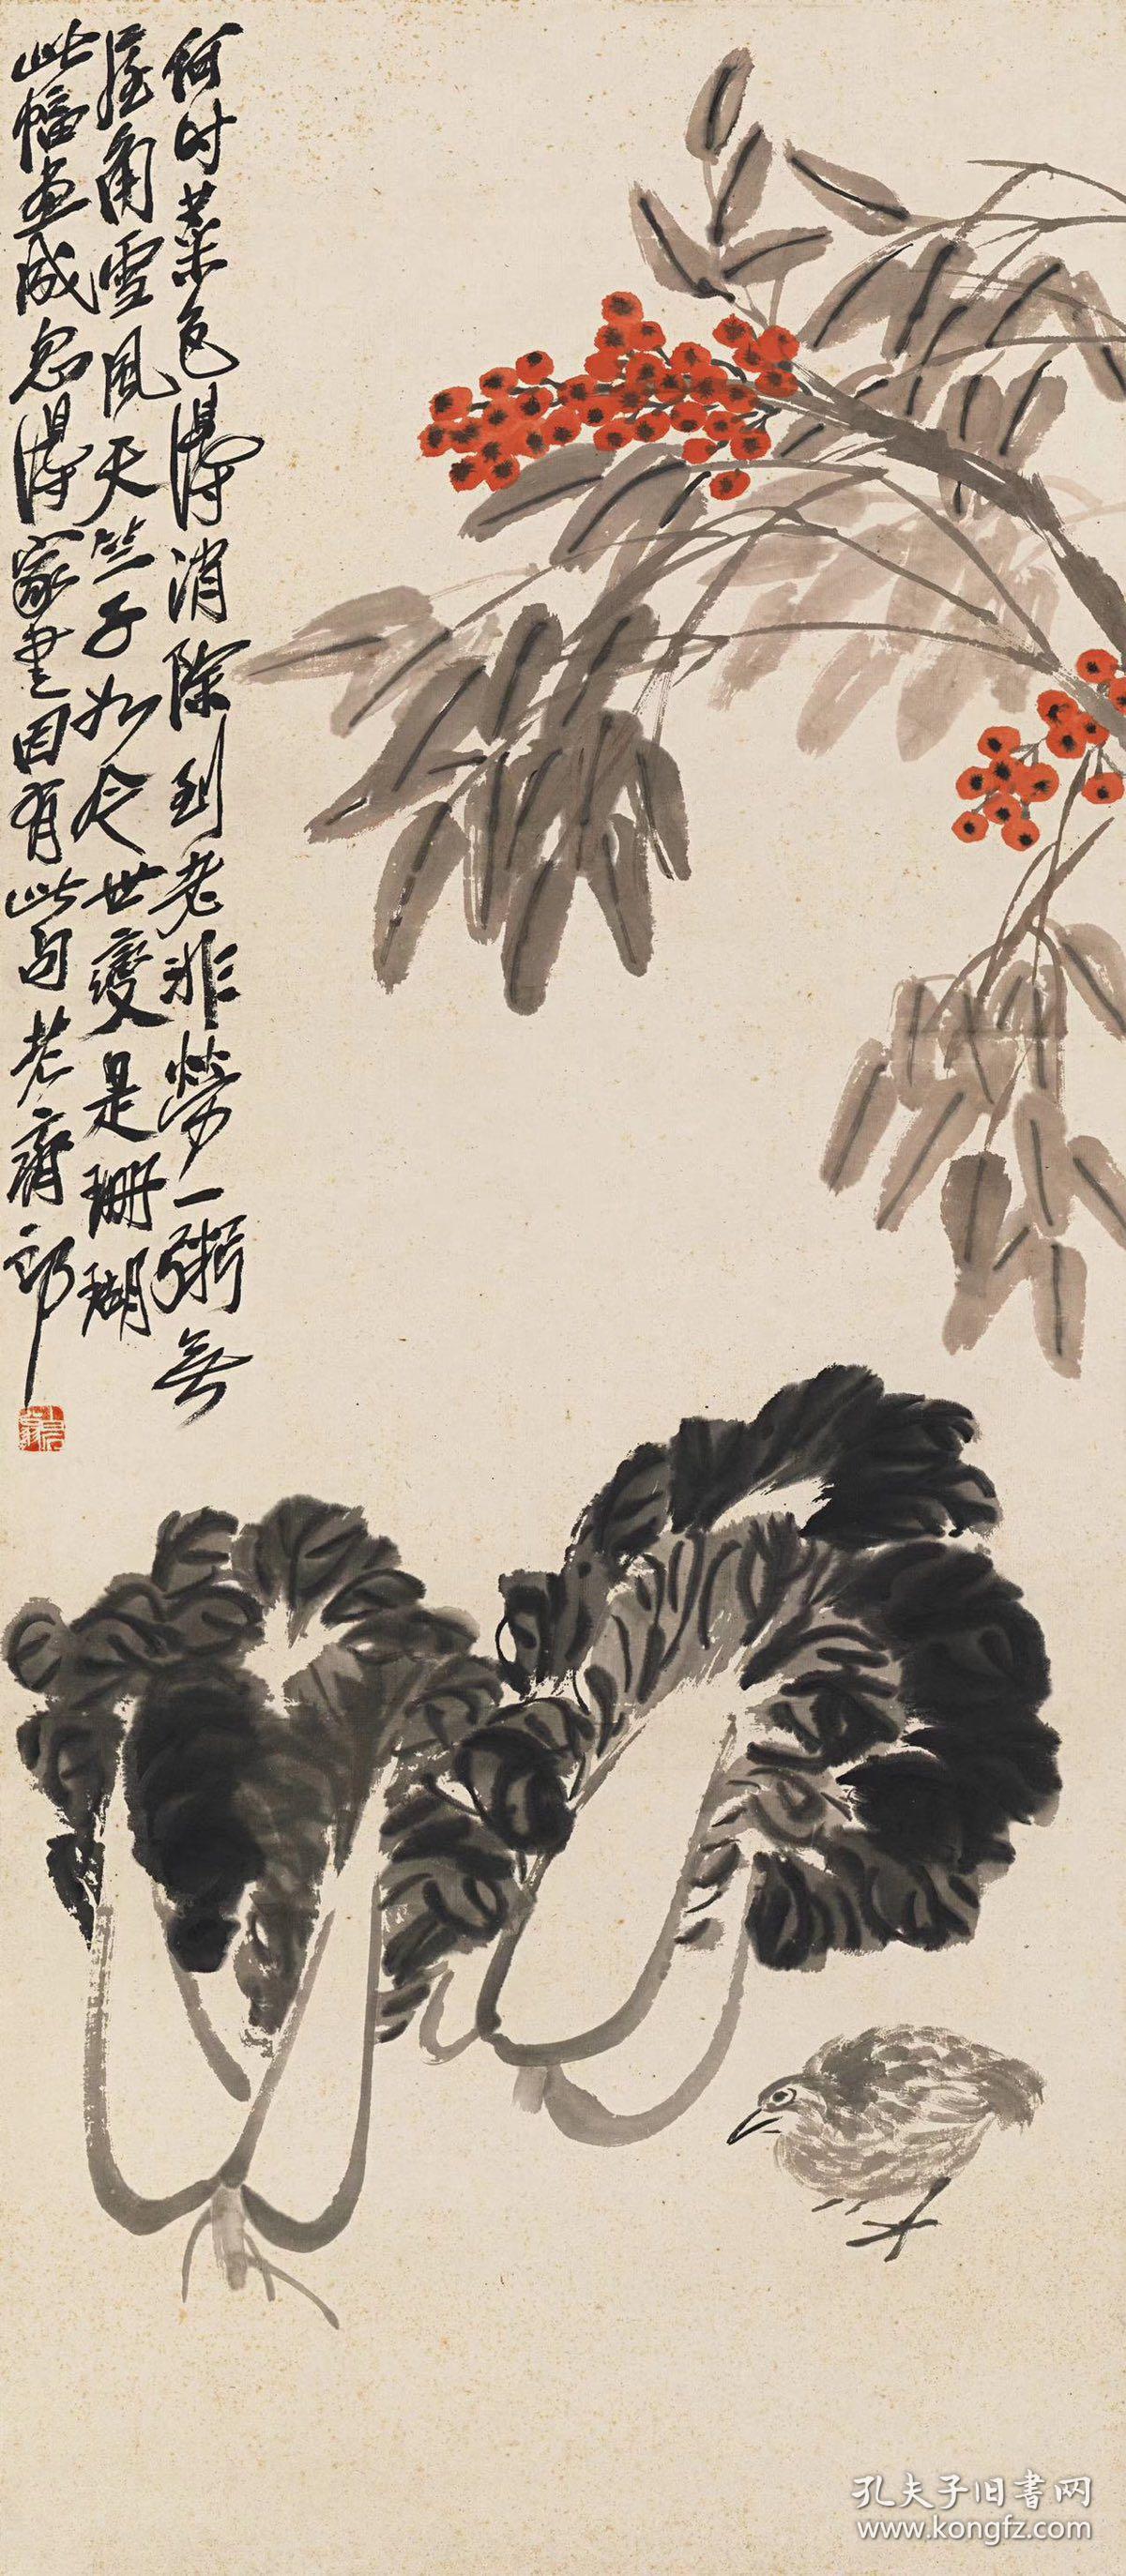 何时菜色得消除到老非勞一粥無
屋角雪風天竺子如今世變是珊瑚
此幅畫成忽得家書因有此句老齊郎
孔夫子旧書网
www.kongfz.com